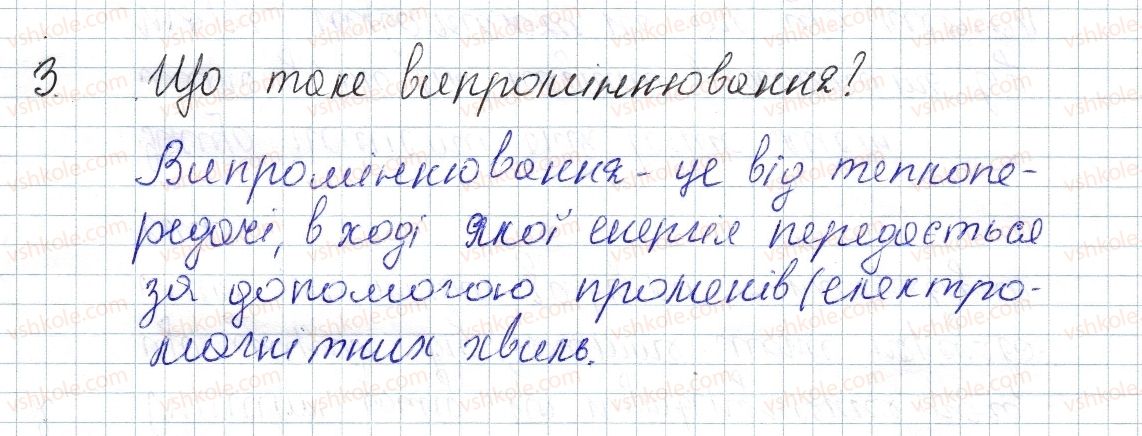 3. Що таке випромінювання?
Випромінювання - це від теплопе-
редачі, в ході якої енергія передається
за допомогою променів (електро-
магнітних хвиль.